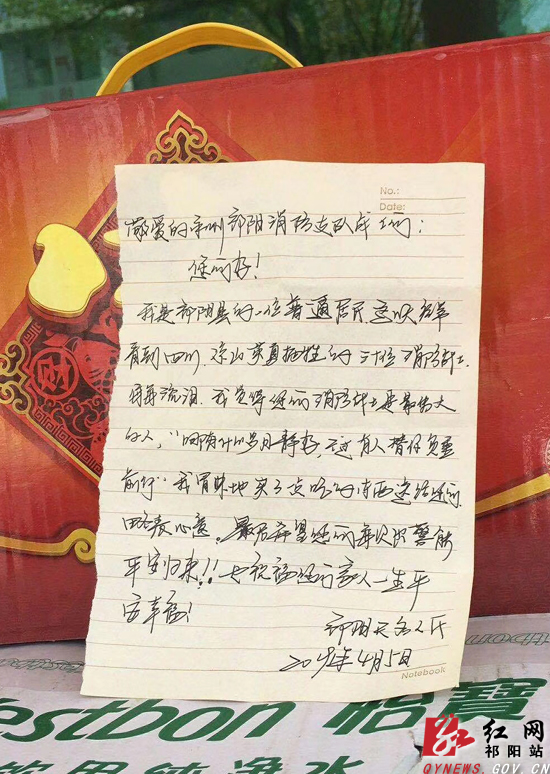 No.:
Date:
敬爱的永州祁阳消防支队战士们：
您们好！
我是祁阳县的一位普通居民，这次在
看到四川凉山英勇牺牲的三十位消防战士，
泪流。我觉得您们消防战士是最伟大
的人，“哪有什么岁月静好，只是有人替你负重
前行”我冒昧地买了点吃的东西送给您们，
略表心意。最后希望您们每次出警能
平安归来！！也祝福您们家人一生平
安幸福！
祁阳无名人氏
2019年4月5日
Notebook
财
estbon 怡寶
饮用纯净水
红网
祁阳站
QYNEWS.GOV.CN